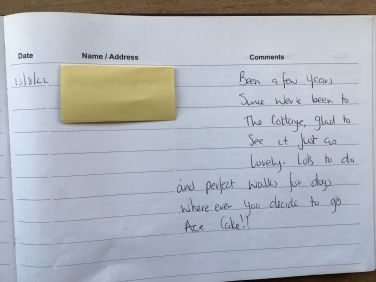 Date Name / Address Comments
13/8/22 Been a few years
Since we've been to
The Cottage, glad to
See it Just as
Lovely. Lots to do
and perfect walks for dogs
where ever you decide to go.
Ace Cake!!